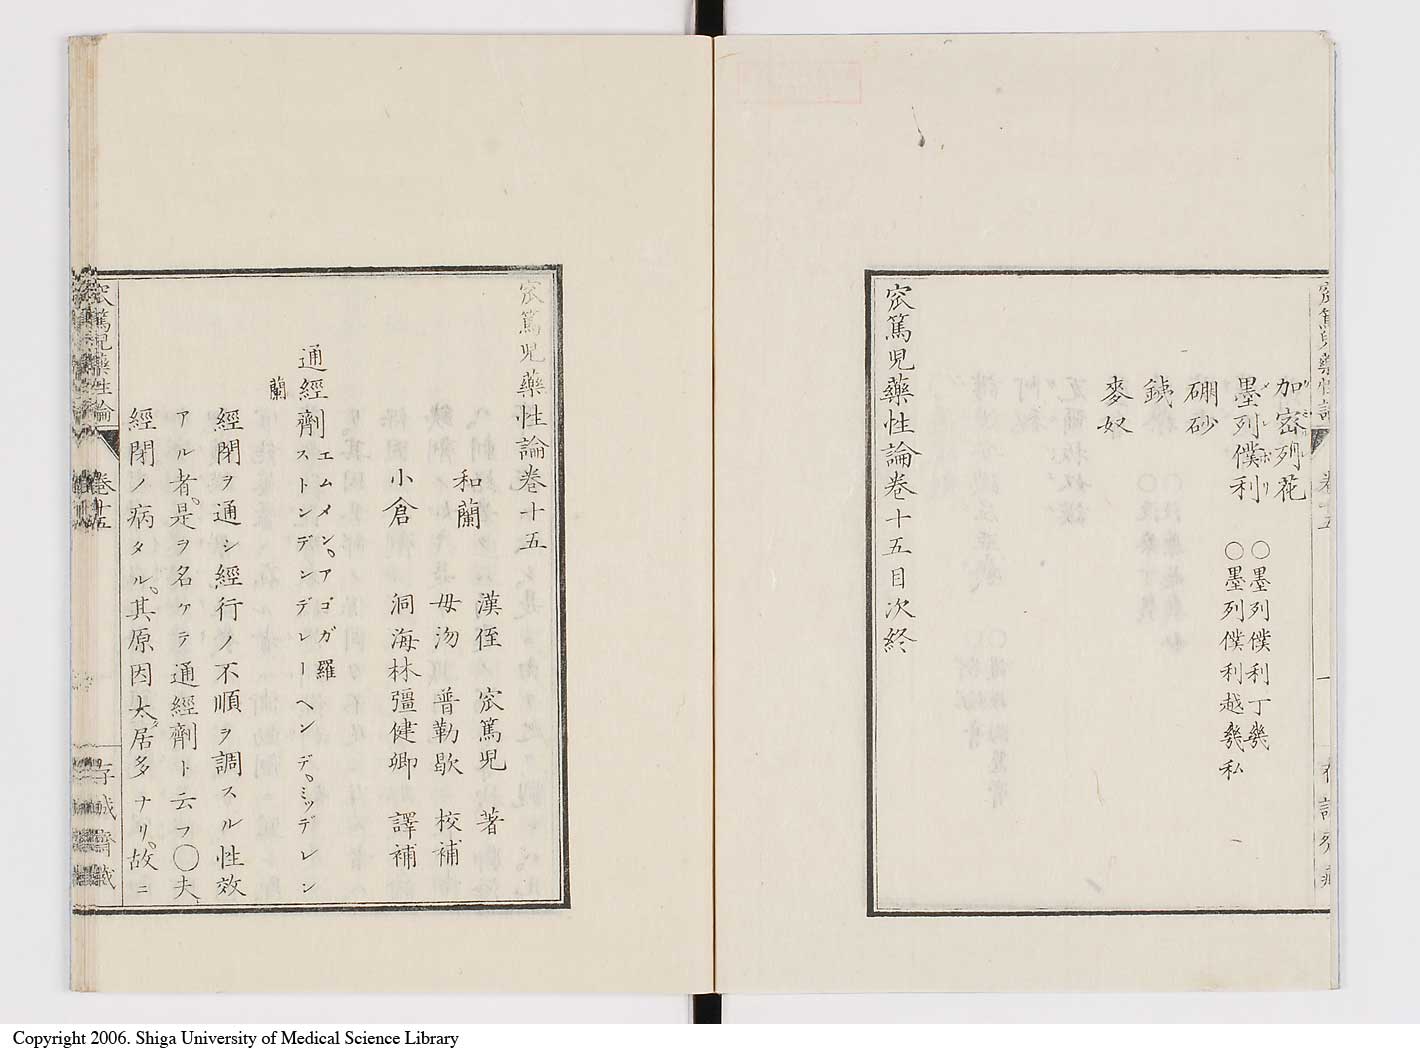 加密列花
墨列僕利 〇墨列僕利丁幾
〇墨列僕利越幾私
硼砂
銕
麥奴
窊篤児藥性論巻十五目次終
窊篤児藥性論巻十五
和蘭 漢侄 窊篤児 著
毋氻 普勒歇 校補
小倉 洞海林彊健卿 譯補
通經劑 エムメン、アゴガ羅
ストンデンデレーヘンデ、ミッデレン
蘭
經閉ヲ通シ經行ノ不順ヲ調スル性效
アル者、是ヲ名ケテ通經劑ト云フ〇夫
經閉ノ病タル、其原因太タ居多ナリ、故ニ
窊篤児藥性論 巻十五
Copyright 2006. Shiga University of Medical Science Library